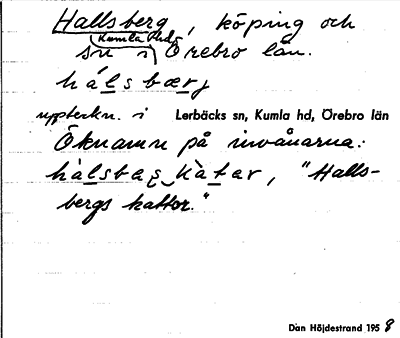 Hallsberg, köping och
Kumla hd,
sn i Örebro län.
hálsbærj
uppteckn. i Lerbäcks sn, Kumla hd, Örebro län
Öknamn på invånarna:
hàlsbæş kàtar, "Halls-
bergs kattor."
Dan Höjdestrand 1958